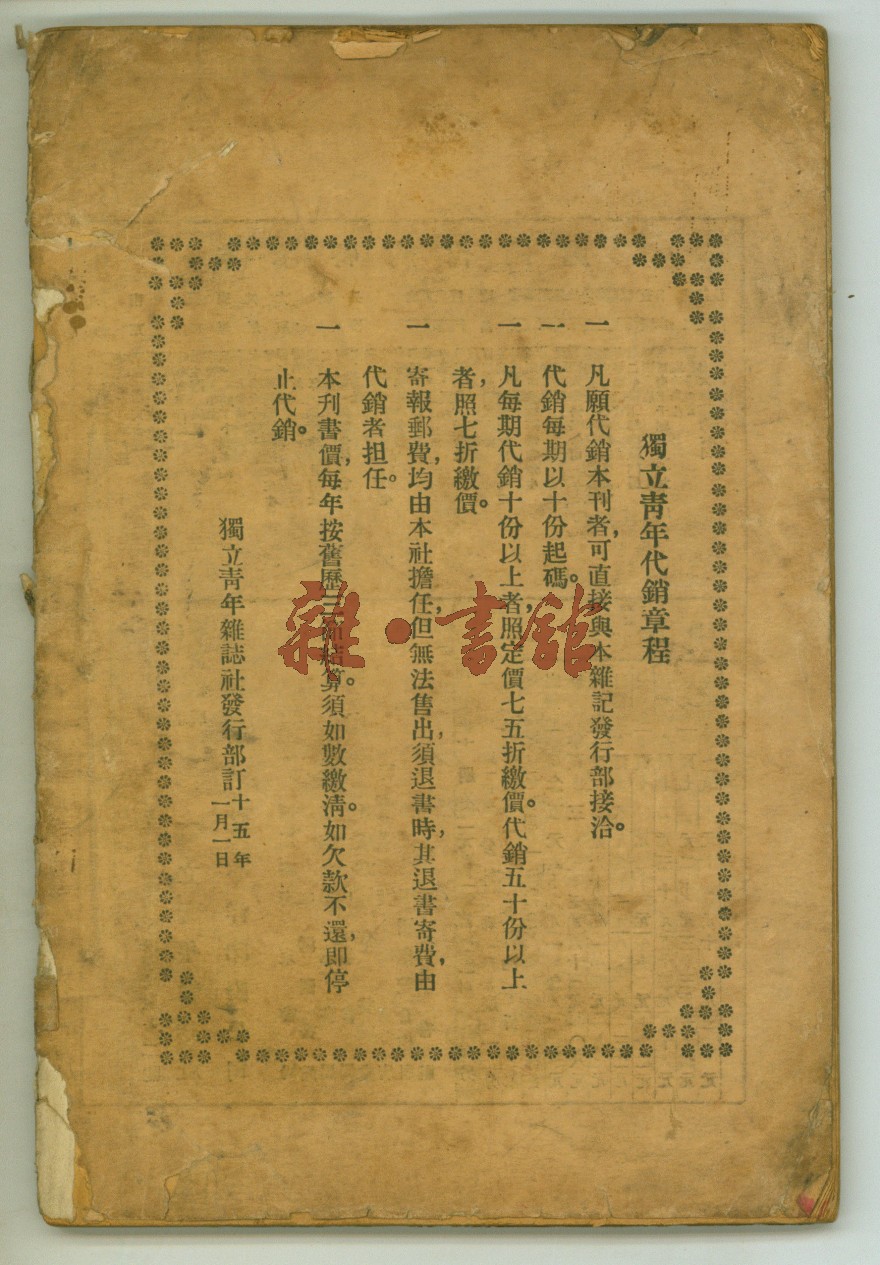 獨立靑年代銷章程
一 凡願代銷本刊者,可直接與本雜記發行部接洽。
一 代銷每期以十份起碼。
一 凡每期代銷十份以上者,照定價七五折繳價。代銷五十份以上
者,照七折繳價。
一 寄報郵費,均由本社擔任,但無法售出,須退書時,其退書寄費,由
代銷者担任。
一 本刊書價,每年按舊歷三節結算。須如數繳淸。如欠款不還,即停
止代銷。
獨立靑年雜誌社發行部訂 十五年
一月一日
雜·書館